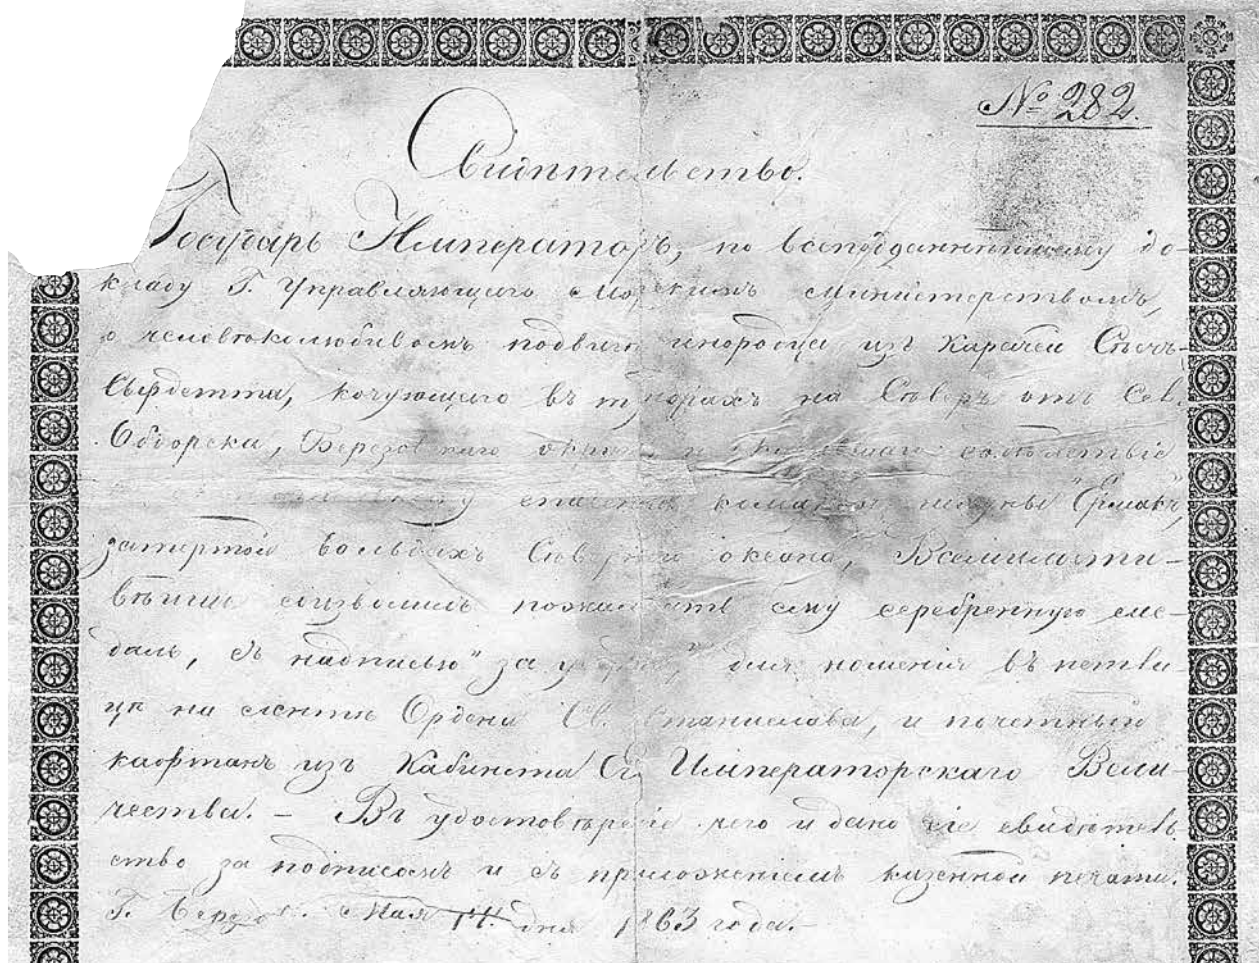 № 282.
Свидѣтельство.
Государь Императоръ, по всеподданнѣйшему до-
кладу Г. Управляющаго Морскимъ Министерствомъ,
о человѣколюбивомъ подвигѣ инородца изъ Карачеи Сѣчь-
Сырдетта, кочующаго въ тундрахъ на Сѣверъ отъ Сел.
Обдорска, Березовскаго округа и оказавшаго содѣйствіе
къ спасенію команды шкуны "Ермакъ",
затертой во льдахъ Сѣвернаго океана, Всемилости-
вѣйше соизволилъ пожаловать ему серебренную ме-
даль, съ надписью "за усердіе", для ношенія въ петли-
цѣ на лентѣ Ордена Св. Станислава, и почетный
кафтанъ изъ Кабинета Его Императорскаго Вели-
чества. – Въ удостовѣреніе чего и дано сіе свидѣтель-
ство за подписомъ и съ приложеніемъ казенной печати.
Г. Березовъ. Мая 14 дня 1863 года. –